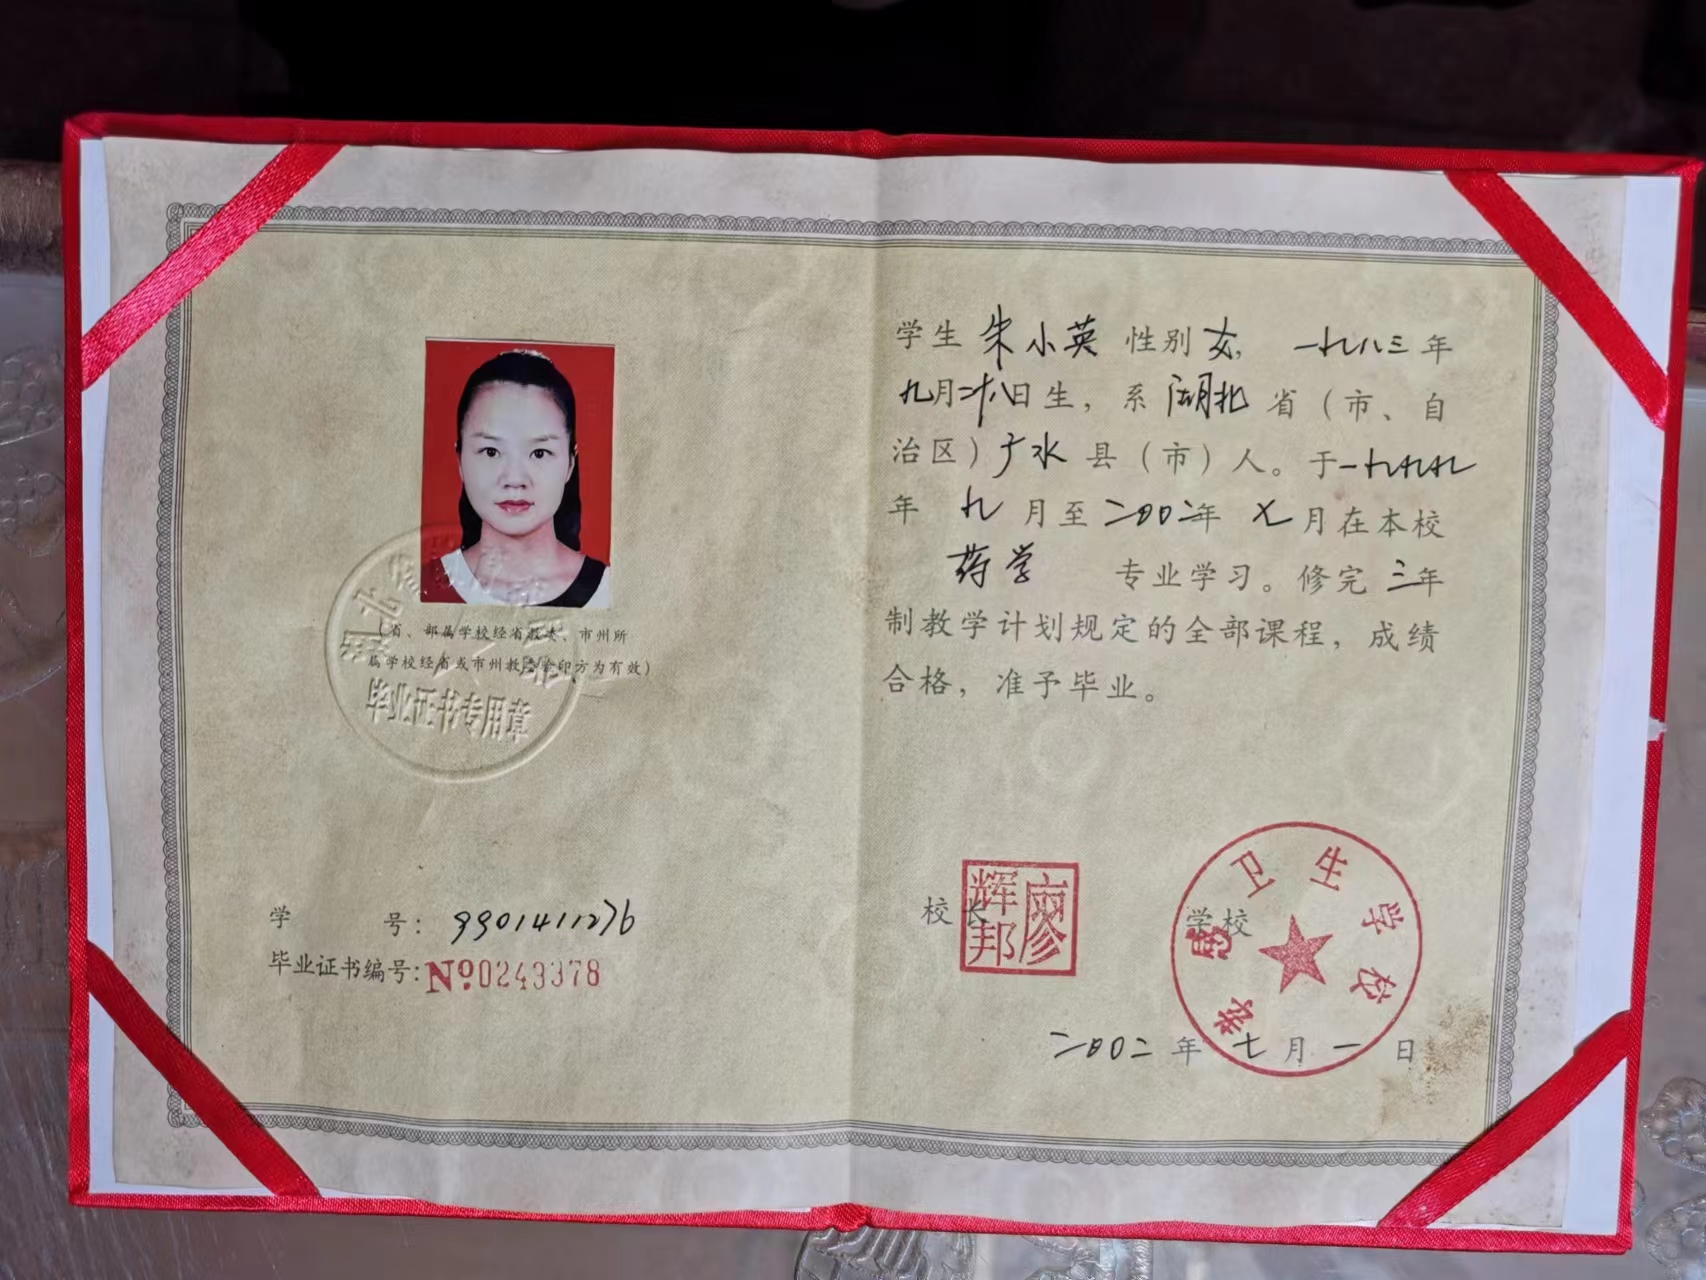 (省、部属学校经省教委、市州所
属学校经省或市州教委验印方为有效)
毕业证书专用章
学 号: 9901411276
毕业证书编号:No.0243378
学生 朱小英 性别 女, 一九八三 年
九月二十八日生, 系 湖北 省(市、自
治区)广水 县(市)人。于一九九九
年 九 月至 二00二年 七月在本校
药学 专业学习。修完 三年
制教学计划规定的全部课程, 成绩
合格, 准予毕业。
校长 廖辉邦
学校
卫生学校
二00二 年 七 月 一 日